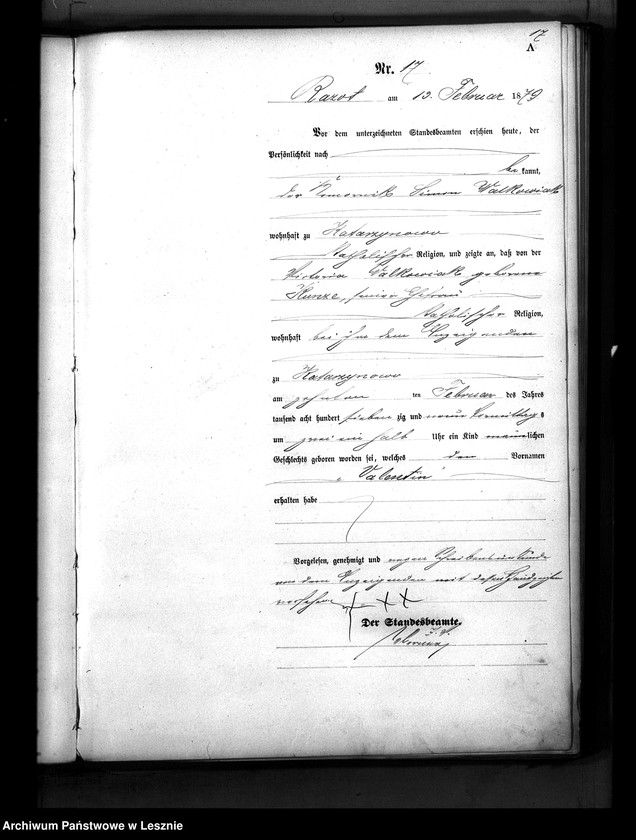 17
A
Nr. 17
Razot am 13. Februar 1879
Vor dem unterzeichneten Standesbeamten erschien heute, der
Persönlichkeit nach
be kannt,
der Komornik Simon Walkowiak
wohnhaft zu Katarzynowo
katholischer Religion, und zeigte an, daß von der
Victoria Walkowiak geborene
Kunze, seiner Ehefrau
katholischer Religion,
wohnhaft bei ihm dem Anzeigenden
zu Katarzynowo
am zehnten ten Februar des Jahres
tausend acht hundert sieben zig und neun Vormittag s
um zwei ein halb Uhr ein Kind männlichen
Geschlechts geboren worden sei, welches den Vornamen
"Valentin"
erhalten habe
Vorgelesen, genehmigt und wegen Schreibensunkunde
von dem Anzeigenden mit dessen Handzeichen
versehen
+ X X
Der Standesbeamte.
Archiwum Państwowe w Lesznie